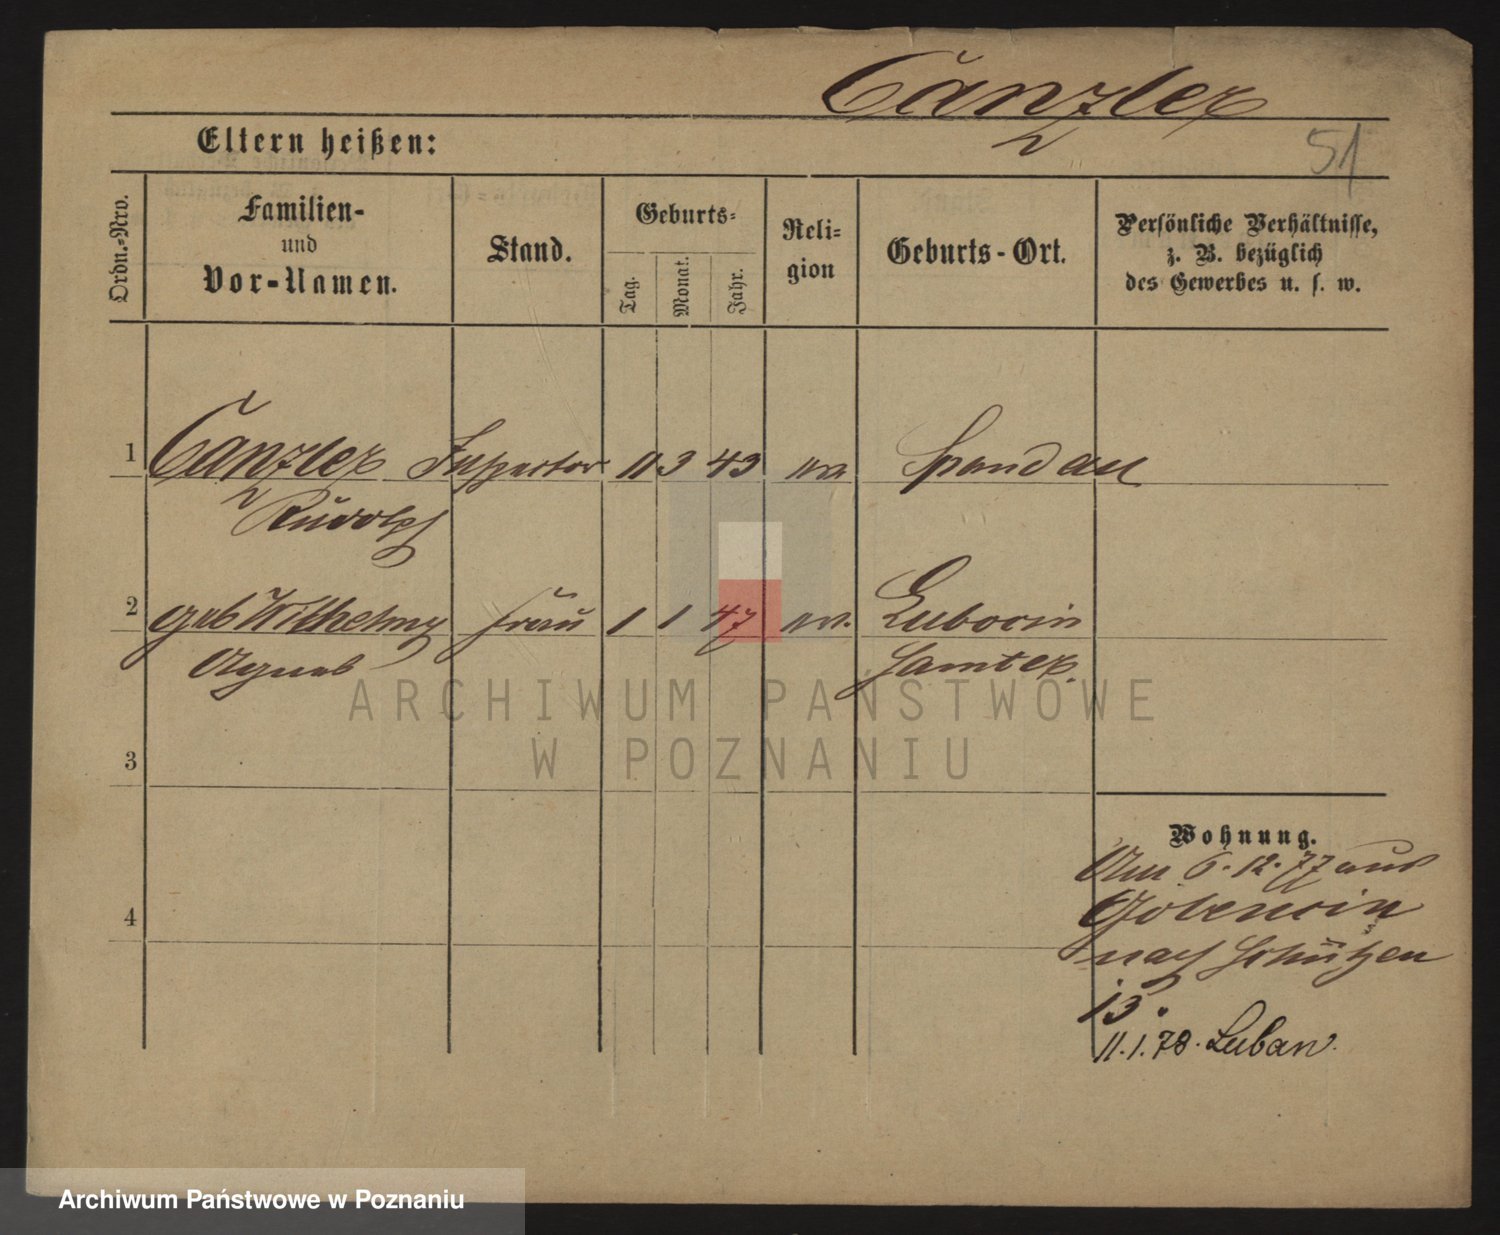 Canzler
51
Eltern heißen:
Ordn.-Nro.
Familien-
und
Vor-Namen.
Stand.
Geburts-
Tag.
Monat.
Jahr.
Reli-
gion
Geburts-Ort.
Persönliche Verhältnisse,
z. B. bezüglich
des Gewerbes u. s. w.
1 Canzler Inspector 11 3 43 Spandau
Rudolph
2 geb Wilhelmy Frau 1 1 47
Agnes Samter.
3
4
Wohnung.
Am 6.12.77 aus
nach Schützen
13.
11.1.78. Luban.
ARCHIWUM PAŃSTWOWE
W POZNANIU
Archiwum Państwowe w Poznaniu